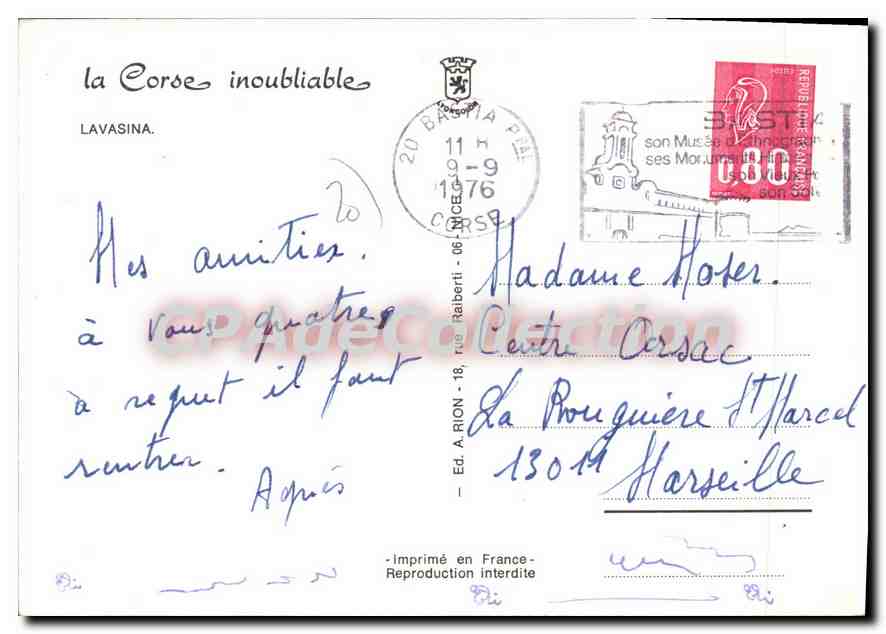 la Corse inoubliable
LAVASINA.
LYONSOJON
20 BASTIA Pal
11 H
9-9
1976
CORSE
BASTIA
son Musée d'ethnograph
ses Monuments Hist
son Vieux Po
son Sol
REPUBLIQUE FRANCAISE
POSTES
0,80
20
Mes amitiés.
à vous quatre,
à regret il faut
rentrer.
Agnès
Madame Moser.
Centre Orsac
La Rouguière St Marcel
13011 Marseille
— Ed. A. RION - 18, rue Raiberti - 06 - NICE —
CPAdeCollection
-Imprimé en France-
Reproduction interdite